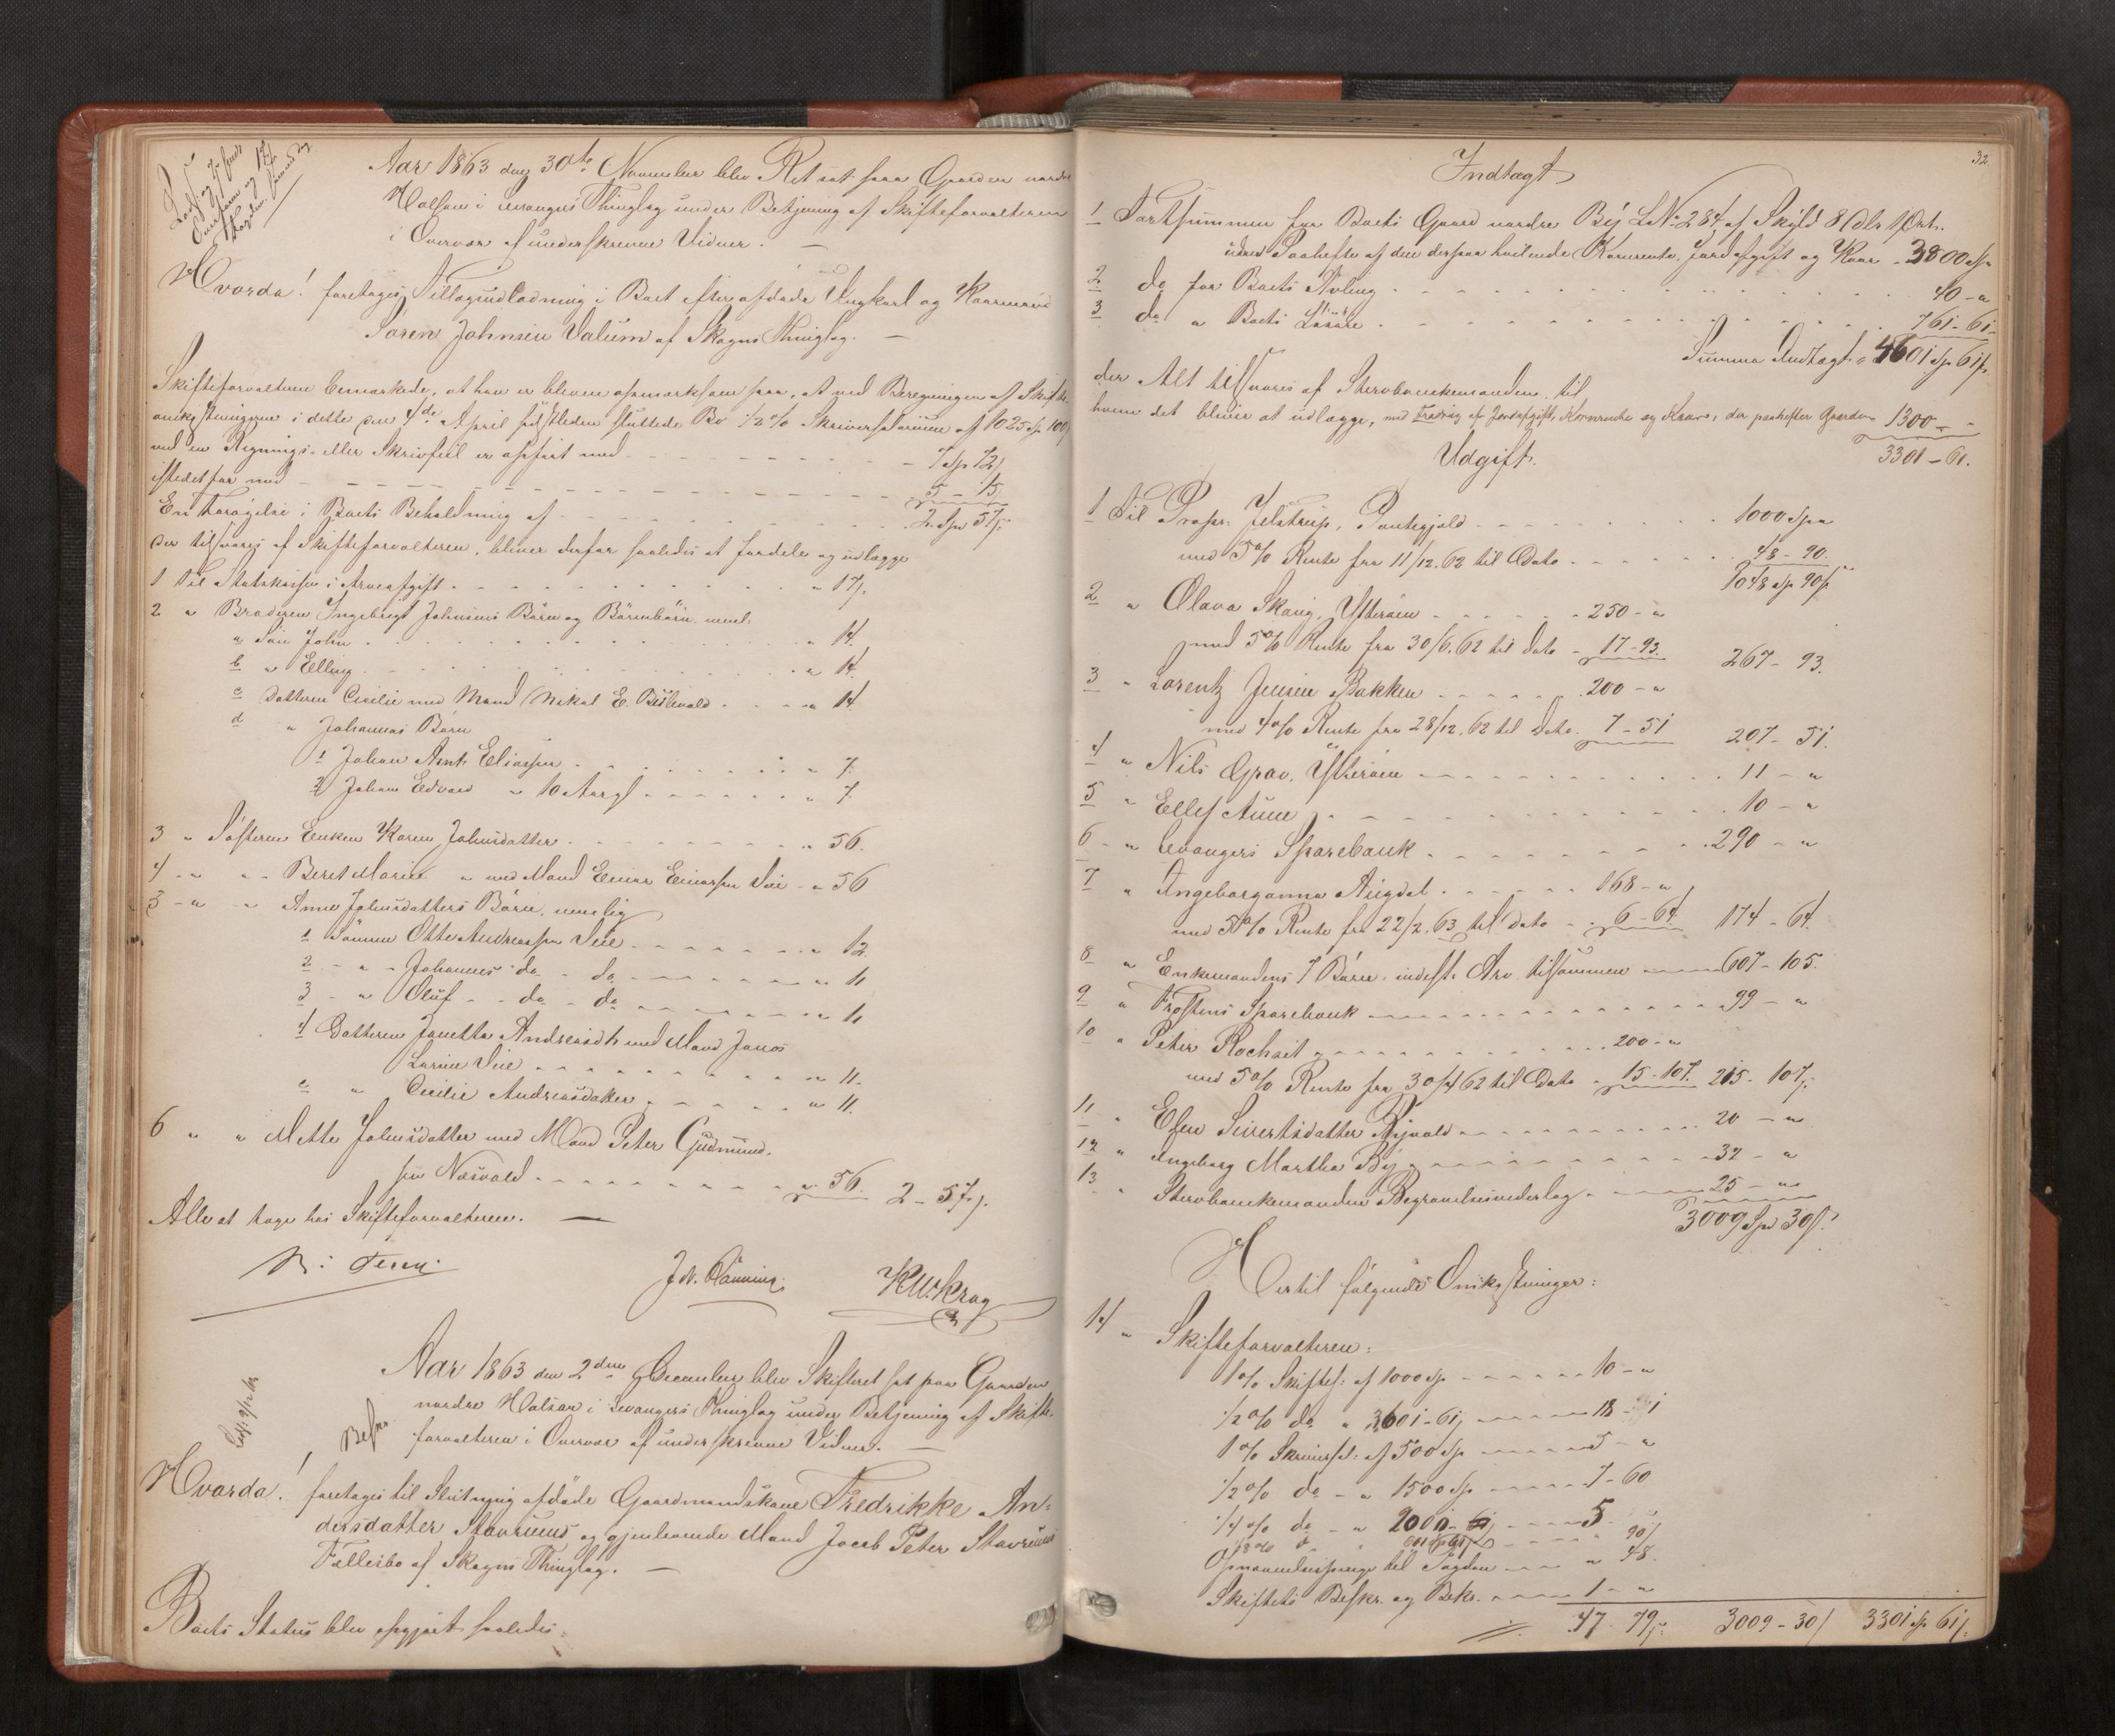 Aar 1863 den 30te November blev Ret sat paa Gaarden nordre
Halsan i Levangers Thinglag under Betjening af Skifteforvalteren
i Overvær af underskrevne Vidner. —
Hvorda! foretages Tillægsudlodning i Boet efter afdøde Ungkarl og Kaarmand
Søren Johnsen Valum af Skogns Thinglag. —
Skifteforvalteren bemærkede, at han er bleven opmærksom paa, at ved Beregningen af Skifte-
omkostningerne i dette den 4de April sidstleden sluttede Bo ½ % Skriversalarium af 1025 Sp 100
ved en Regnings- eller Skrivfeil er opført med - - - 7 Sp 72 /
istedetfor med - - - 5 - 15
En Forøgelse i Boets Behold­ning af - - - 2 Spd 57 /
der tilsvares af Skifteforvalteren, bliver derfor saaledes at fordele og udlægge
1 Til Statskassen i Arveafgift - - - " 17 /
2 " Broderen Ingebrigt Johnsens Børn og Børnebørn. neml:
a Søn John - - - " 14.
b " Elling - - - " 14.
c Datteren Cicilie med Mand Nikal E. - - - " 14.
d " Johannas Børn
1 Johan Arnt Eliassen - - - " 7.
2 Johan Edvard " 10 Aar gl - - - " 7.
3 " Søsteren Enken Karen Johnsdatter - - - " 56.
4 " " Beret Marie " med Mand Einar Einarssen - " 56
5 - " " Anne Johnsdatters Børn, nemlig
1 Sønnen Otto Andreassen - - - " 12.
2 - " - Johannes do - do - - - " 11
3 - " Oluf - - do - do - - - " 11
4 Datteren Janetta Andreasdtr med Mand
- - - " 11.
e " Cicilie Andreasdatter - - - " 11.
6 " " Mette Johnsdatter med Mand Peter Gudmund-
sen Næsvold - - - " 56. 2 - 57 /.
Alle at tage hos Skifteforvalteren. —
KWKrag
Aar 1863 den 2den December blev Skifteret sat paa Gaarden
nordre Halsan i Levangers Thinglag under Betjening af Skifte-
forvalteren i Overvær af underskrevne Vidner. —
Hvorda! foretages til Slutning afdøde Gaardmandskone Fredrikke An-
dersdatter Stavrums og gjenlevende Mand Jacob Peter Stavrums
Fællesbo af Skogns Thinglag. —
Boets Status blev opgjort saaledes:
32.
Indtægt
1 Kortsummen for Boets Gaard nordre By LNo 284 af Skyld 8 Dlr 1 Ort.
uden Paahefte af den derpaa hvilende Kornrente, Jordafgift og Kaar - 3800 Sp
2 do for Boets Avling - - - 40 - "
3 do " Boets Løsøre - - - 761 - 61
Summa Indtægt - 4601 Sp 61 /.
der Alt tilsvares af Stervboenkemanden, til
hvem det bliver at udlægge, med Fradrag af Jordafgift, Kornrente og Kaar, der paahefter Gaarden 1300 - -
3301 - 61.
Udgift.
1 Til Propr: Jelstrup, Pantegjæld - - - 1000 Spd "
med 5 % Rente fra 11/12. 62 til Dato - - - 48 - 90.
1048 Sp 90 /
2 " Olava Skavig, Ytterøen - - - 250 - "
med 5 % Rente fra 30/6. 62 til Dato - 17 - 93. 267 - 93.
3 " Lorentz Jensen Bakken - - - 200 - "
med 4 % Rente fra 28/12. 62 til Dato. 7 - 51 207 - 51.
4 " Nils Grav, Ytterøen - - - 11 - "
5 " Ellef Aune - - - 10 - "
6 - " Levangers Sparebank - - - 290 - "
7 " Ingeborganna Augdal - - - 168 - "
med 5 % Rente fra 22/2. 63 til Dato - 6 - 64 174 - 64.
8 " Enkemandens 7 Børn. indest: Arv tilsammen - 607 - 105.
9 " Frostens Sparebank - - - 99 - "
10 " Peter Rochseit - - - 200 - "
med 5 % Rente fra 30/4 62 til Dato - 15 - 107. 215 - 107 /.
11 " Elen Sivertsdatter Byvald - - - 20 - "
12 " Ingeborg Martha By - - - 32 - "
13 " Stervboenkemanden Begravelsesvederlag - - - 25 - "
3009 Spd 30 /.
Hertil følgende Omkostninger:
14 " Skifteforvalteren:
1 % Skiftes: af 1000 Sp - - - 10 - "
½ % do " 3601 - 61 / - - - 18 - 1
1 % Skriversal: af 500 Sp - - - 5 - "
½ % do - " 1500 Sp - - - 7 - 60
¼ % do - " 2000 - - - 5
Opmaalelsespenge til Fogden - - - " 48.
Skiftets Beskr. og Bekr. - - - 1 - "
47 - 79 /: 3009 - 30 / 3301 Sp 61 /.